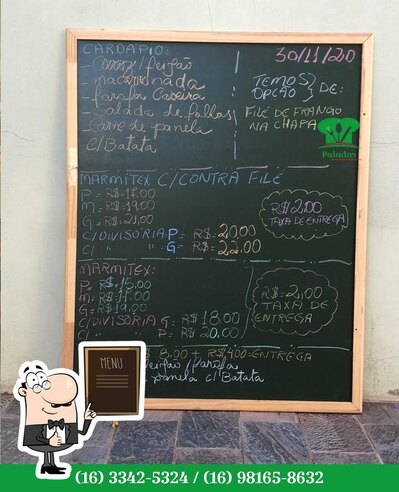 CARDÁPIO: 30/11/20
- Arroz/feijão
- macarronada
- farofa Caseira
- Salada de follas
Carne de panela
C/Batata
TEMOS
OPÇÃO } DE:
FILÉ DE FRANGO
NA CHAPA
Palador
MARMITEX C/CONTRA FILÉ
P= R$=17,00
M= R$=19,00
G= R$=21,00
C/DIVISÓRIA P= R$=20,00
C/ " G= R$=22,00
R$2,00
TAXA DE ENTREGA
MARMITEX:
P= R$=15,00
M= R$=17,00
G= R$=19,00
C/DIVISÓRIA G= R$18,00
C/ " P= R$20,00
R$=2,00
TAXA DE
ENTREGA
$ 8,00 + R$4,00=ENTREGA
feijão/farofa
panela c/Batata
MENU
(16) 3342-5324 / (16) 98165-8632